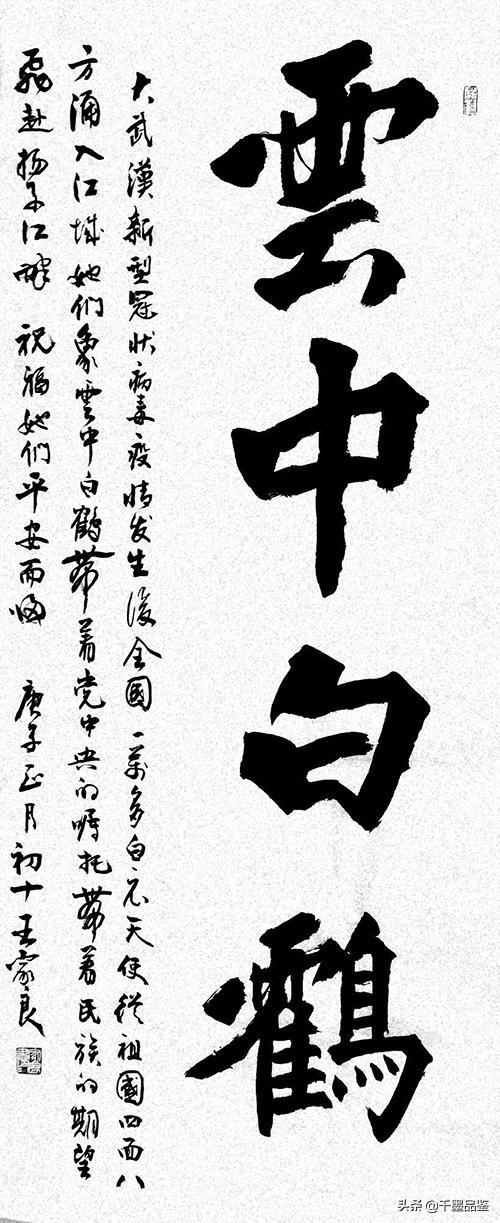 雲中白鶴
大武漢新型冠状病毒疫情发生後全國一萬多白衣天使從祖國四面八
方涌入江城她们象雲中白鶴带着党中央的嘱托带着民族的期望
飛赴扬子江畔 祝福她们平安而归 庚子正月初十王家良
头条 @千墨品鉴